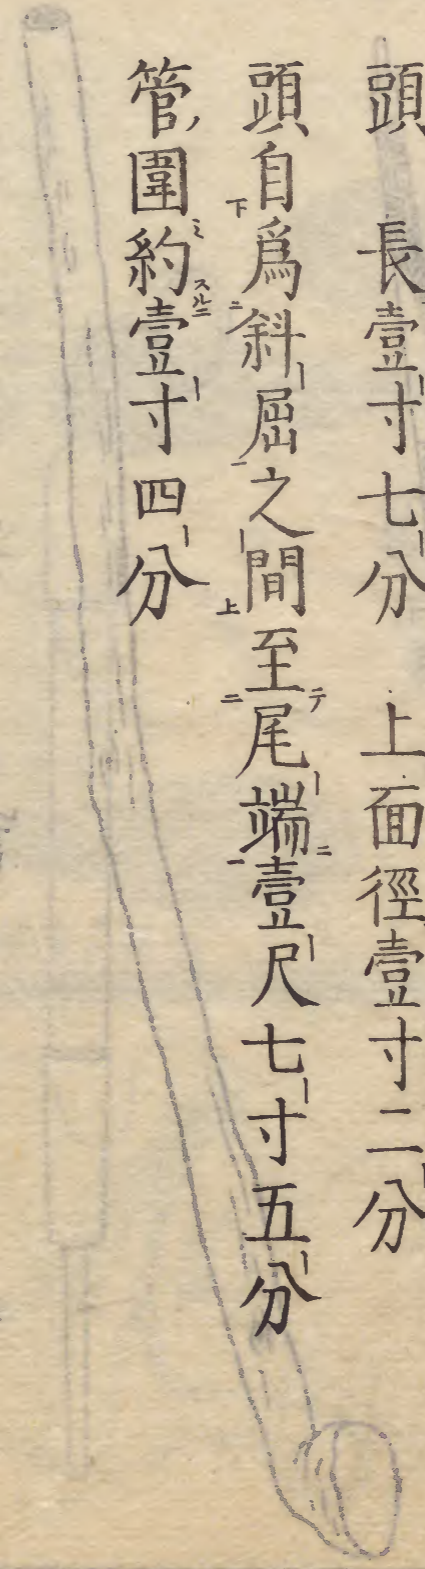 頭　長壹寸七分　上面徑壹寸二分
頭自爲斜屈之間至尾端壹尺七寸五分
管圍約壹寸四分